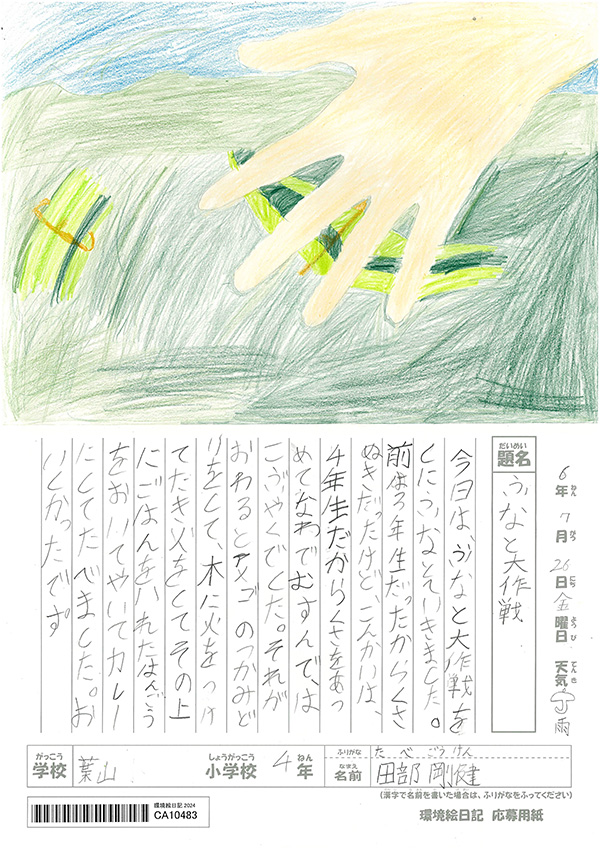 6年ねん 7月がつ 26日にち 金曜日ようび 天気てんき 雨
だいめい
題名 ぶなと大作戦
今日は、ぶなと大作戦を
しにぶなとていきました。
前は3年生だったからくさ
ぬきだったけど、こんかいは、
4年生だからくさをあつ
めてなわでむすんで、は
こぶやくでした。それが
おわるとアメゴのつかみど
りをして、木に火をつけ
てたき火をしてその上
にごはんをいれたはんごう
をおいてやいてカレー
にしてたべました。お
いしかったです。
がっこう しょうがっこう ねん ふりがな たべ ごうけん
学校 葉山 小学校 4年 なまえ 名前 田部 剛健
(漢字で名前を書いた場合は、ふりがなをふってください)
環境絵日記 2024
CA10483
環境絵日記 応募用紙